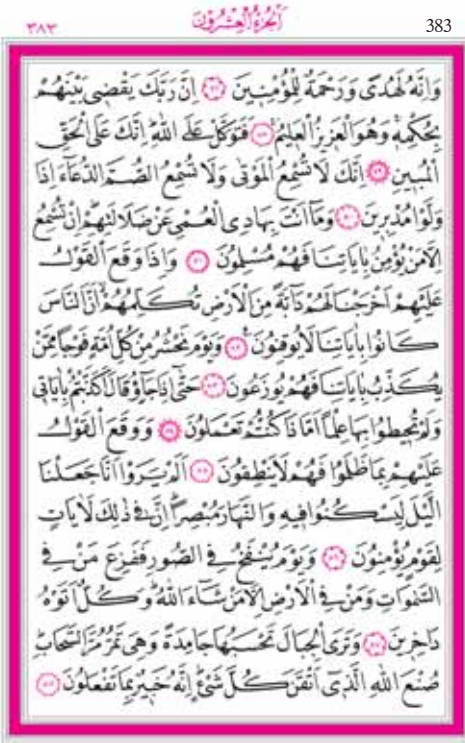 ٣٨٣
اَلْجُزْءُ الْعِشْرُونَ
383
وَاِنَّهُ لَهُدًى وَرَحْمَةٌ لِلْمُؤْمِنٖينَ ﴿٧٧﴾ اِنَّ رَبَّكَ يَقْضٖى بَيْنَهُمْ
بِحُكْمِهٖ وَهُوَ الْعَزٖيزُ الْعَلٖيمُ ﴿٧٨﴾ فَتَوَكَّلْ عَلَى اللّٰهِ اِنَّكَ عَلَى الْحَقِّ
الْمُبٖينِ ﴿٧٩﴾ اِنَّكَ لَا تُسْمِعُ الْمَوْتٰى وَلَا تُسْمِعُ الصُّمَّ الدُّعَٓاءَ اِذَا
وَلَّوْا مُدْبِرٖينَ ﴿٨٠﴾ وَمَٓا اَنْتَ بِهَادِى الْعُمْىِ عَنْ ضَلَالَتِهِمْ اِنْ تُسْمِعُ
اِلَّا مَنْ يُؤْمِنُ بِاٰيَاتِنَا فَهُمْ مُسْلِمُونَ ﴿٨١﴾ وَاِذَا وَقَعَ الْقَوْلُ
عَلَيْهِمْ اَخْرَجْنَا لَهُمْ دَٓابَّةً مِنَ الْاَرْضِ تُكَلِّمُهُمْ اَنَّ النَّاسَ
كَانُوا بِاٰيَاتِنَا لَا يُوقِنُونَ ﴿٨٢﴾ وَيَوْمَ نَحْشُرُ مِنْ كُلِّ اُمَّةٍ فَوْجًا مِمَّنْ
يُكَذِّبُ بِاٰيَاتِنَا فَهُمْ يُوزَعُونَ ﴿٨٣﴾ حَتّٰٓى اِذَا جَٓاؤُ۫ قَالَ اَكَذَّبْتُمْ بِاٰيَاتٖى
وَلَمْ تُحٖيطُوا بِهَا عِلْمًا اَمَّا ذَا كُنْتُمْ تَعْمَلُونَ ﴿٨٤﴾ وَوَقَعَ الْقَوْلُ
عَلَيْهِمْ بِمَا ظَلَمُوا فَهُمْ لَا يَنْطِقُونَ ﴿٨٥﴾ اَلَمْ يَرَوْا اَنَّا جَعَلْنَا
الَّيْلَ لِيَسْكُنُوا فٖيهِ وَالنَّهَارَ مُبْصِرًا اِنَّ فٖى ذٰلِكَ لَاٰيَاتٍ
لِقَوْمٍ يُؤْمِنُونَ ﴿٨٦﴾ وَيَوْمَ يُنْفَخُ فِى الصُّورِ فَفَزِعَ مَنْ فِى
السَّمٰوَاتِ وَمَنْ فِى الْاَرْضِ اِلَّا مَنْ شَٓاءَ اللّٰهُ وَكُلٌّ اَتَوْهُ
دَاخِرٖينَ ﴿٨٧﴾ وَتَرَى الْجِبَالَ تَحْسَبُهَا جَامِدَةً وَهِىَ تَمُرُّ مَرَّ السَّحَابِ
صُنْعَ اللّٰهِ الَّذٖٓى اَتْقَنَ كُلَّ شَىْءٍ اِنَّهُ خَبٖيرٌ بِمَا تَفْعَلُونَ ﴿٨٨﴾